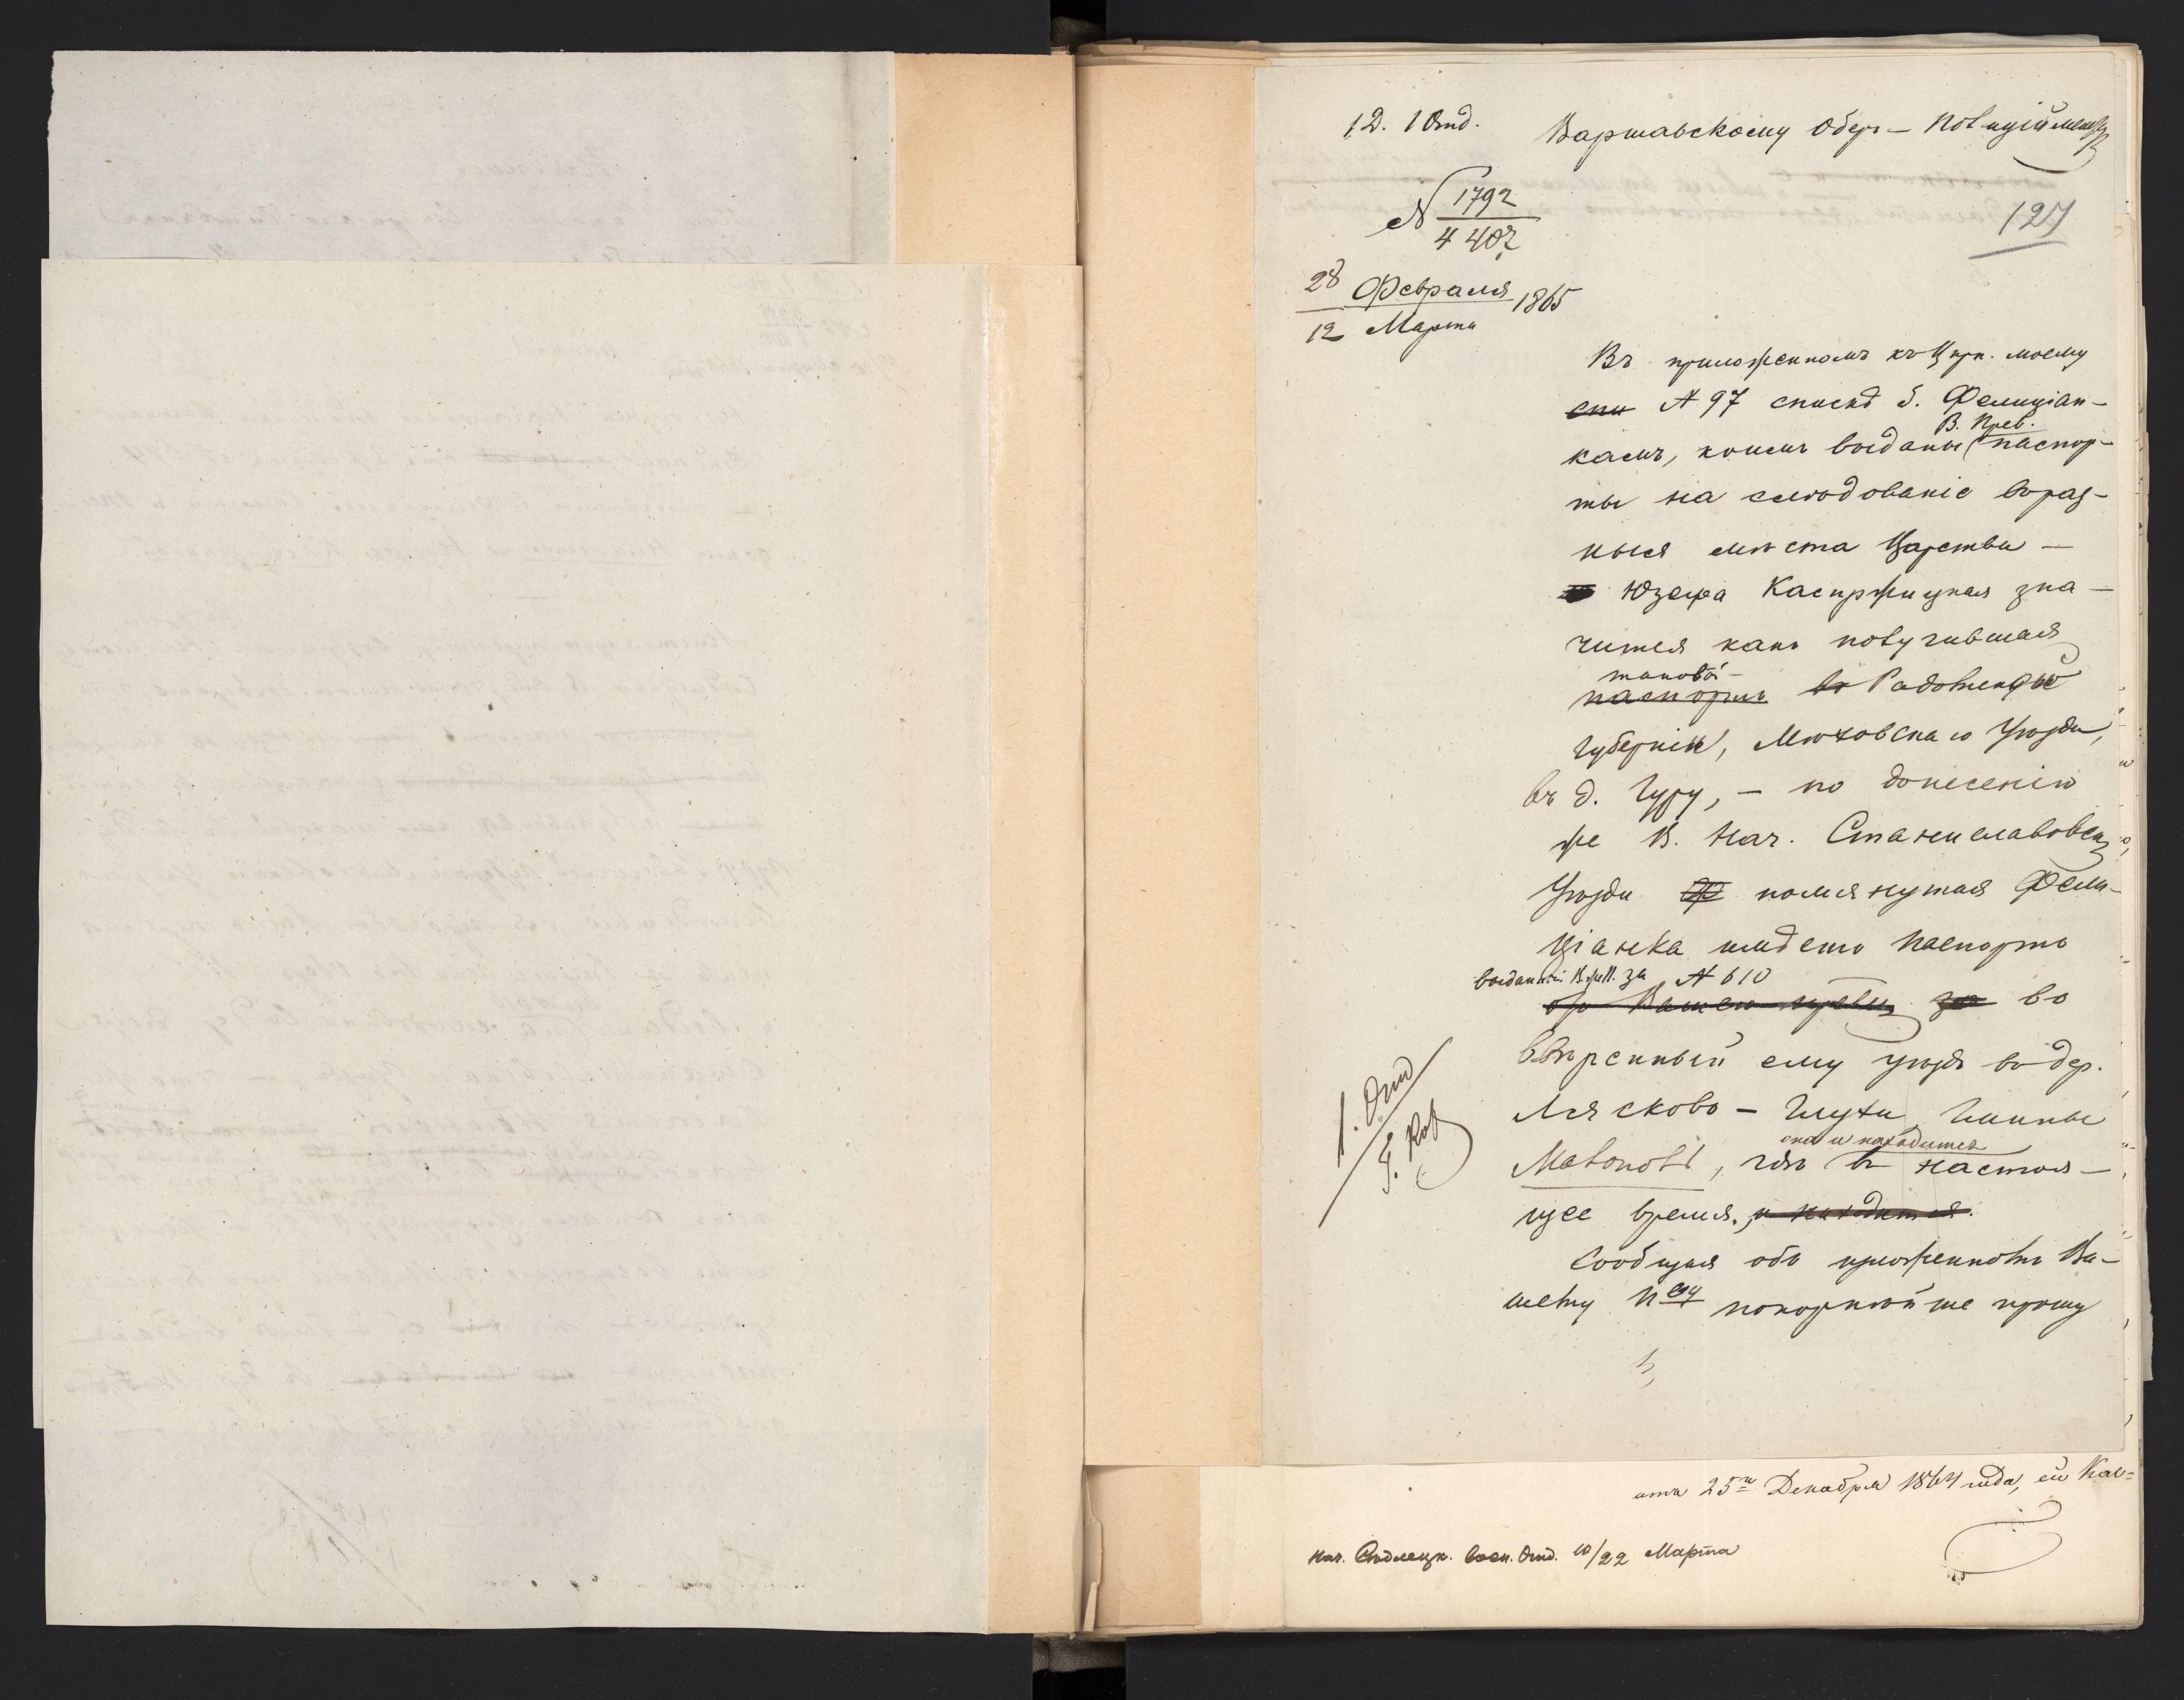 1 Д. 1 Отд.
Варшавскому Обер-Полицiймейстеру
127
N 1792
4407
28 Февраля 1865
12 Марта
Въ приложенномъ къ Цирк. моему
спи N 97 списке б. Фелицiан-
В. Прев.
камъ, коимъ выданы паспор-
ты на следованiе въ раз-
ныя места Царства —
Юзефа Каспржицкая зна-
чится какъ получившая
таковой
паспортъ въ Радомской
губернiи, Меховскаго Уезда,
въ д. Гуру, — по донесенiю
же В. Нач. Станиславовск.
Уезда помянутая Фели-
цiанка имеетъ паспортъ
выданный В. П. за N 610
за во
вверенный ему уездъ въ дер.
Лясково-Глухи, гмины
она и находится
, где въ настоя-
щее время, и находится.
Сообщая объ изложенномъ Ва-
шему П-ву покорнейше прошу
1. Отд
отъ 25го Декабря 1864 года, ей Кас=
Нач. Седлецк. Воен. Отд. 10/22 Марта